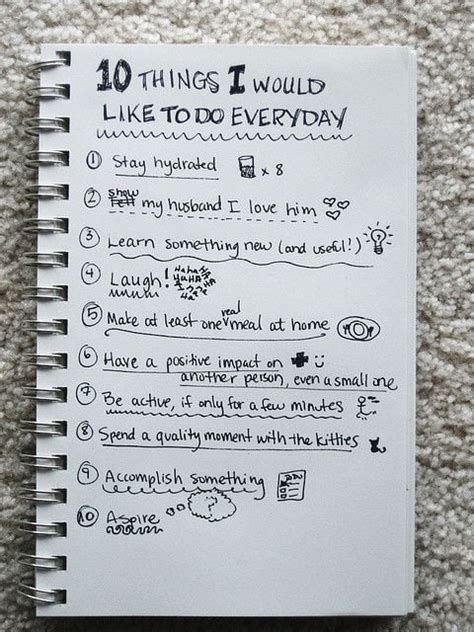 10 THINGS I WOULD
LIKE TO DO EVERYDAY
1 Stay hydrated x 8
2 show my husband I love him
3 Learn something new (and useful!)
4 Laugh! HaHa
HaHA
HA
5 Make at least one real meal at home
6 Have a positive impact on
another person, even a small one
7 Be active, if only for a few minutes
8 Spend a quality moment with the kitties
9 Accomplish something TO DO
10 Aspire ?